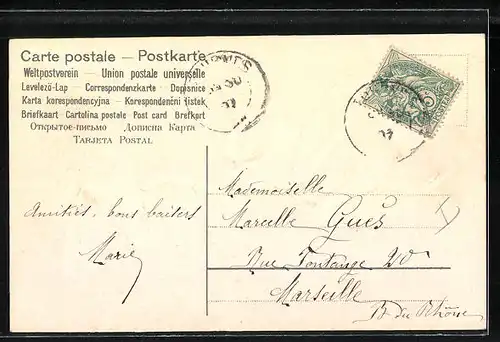 Carte postale — Postkarte
Weltpostverein — Union postale universelle
Levelező-Lap — Correspondenzkarte — Dopisnice
Karta korespondencyjna — Korespondenční lístek
Briefkaart — Cartolina postale — Post card — Brefkort
Открытое-письмо — Дописна Карта
Tarjeta Postal
Amitiés, bons baisers
Marie
Mademoiselle
Marcelle Gues
Rue Fontange 20
Marseille
B. du Rhône